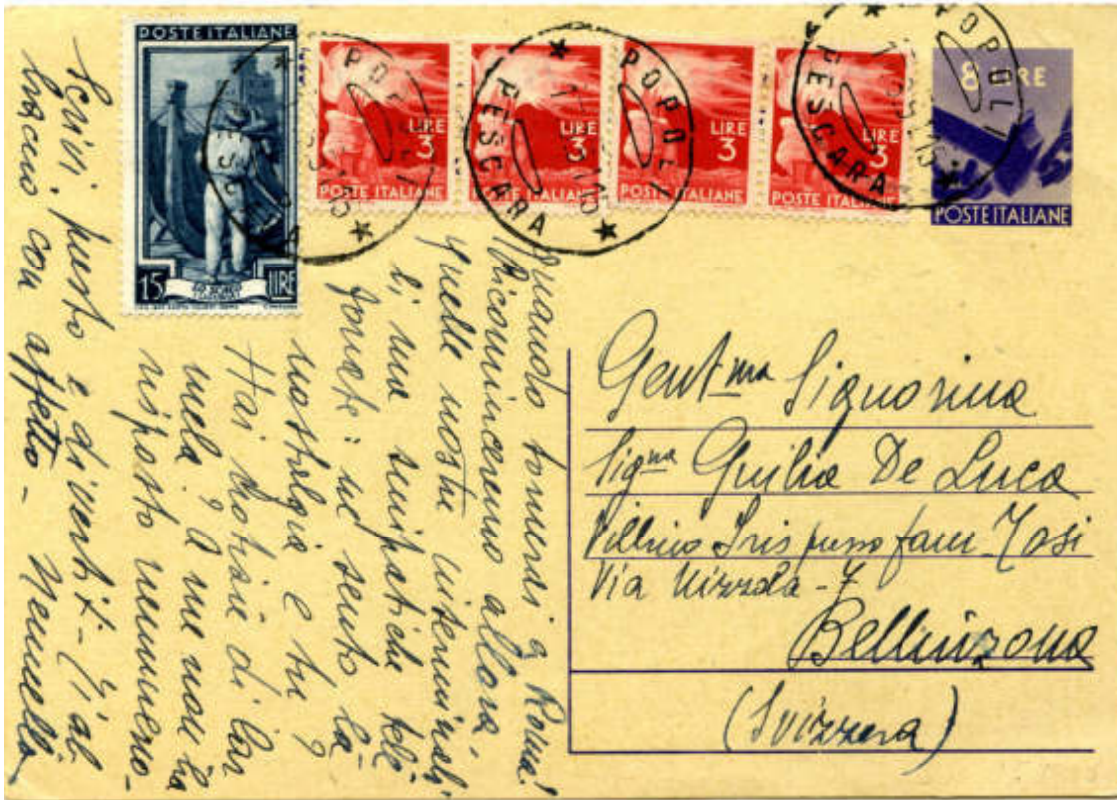 POSTE ITALIANE
15 LIRE
LIRE
3
POSTE ITALIANE
LIRE
3
POSTE ITALIANE
LIRE
3
POSTE ITALIANE
LIRE
3
POSTE ITALIANE
8 LIRE
POSTE ITALIANE
POPOLI
PESCARA
POPOLI
PESCARA
POPOLI
PESCARA
Gent.ma Signorina
Sig.na Giulia De Luca
Villino Iris presso fam. Tosi
Via Nizzola - 7
Bellinzona
(Svizzera)
quando tornerai a Roma!
Ricominceremo allora
quelle nostre interminabi
li ma simpatiche tele
fonate: ne sento la
nostalgia e tu?
Hai notizie di
mela? A me non ha
risposto nemmeno -
Scrivi, presto e divertiti - Ti ab
braccio con affetto -